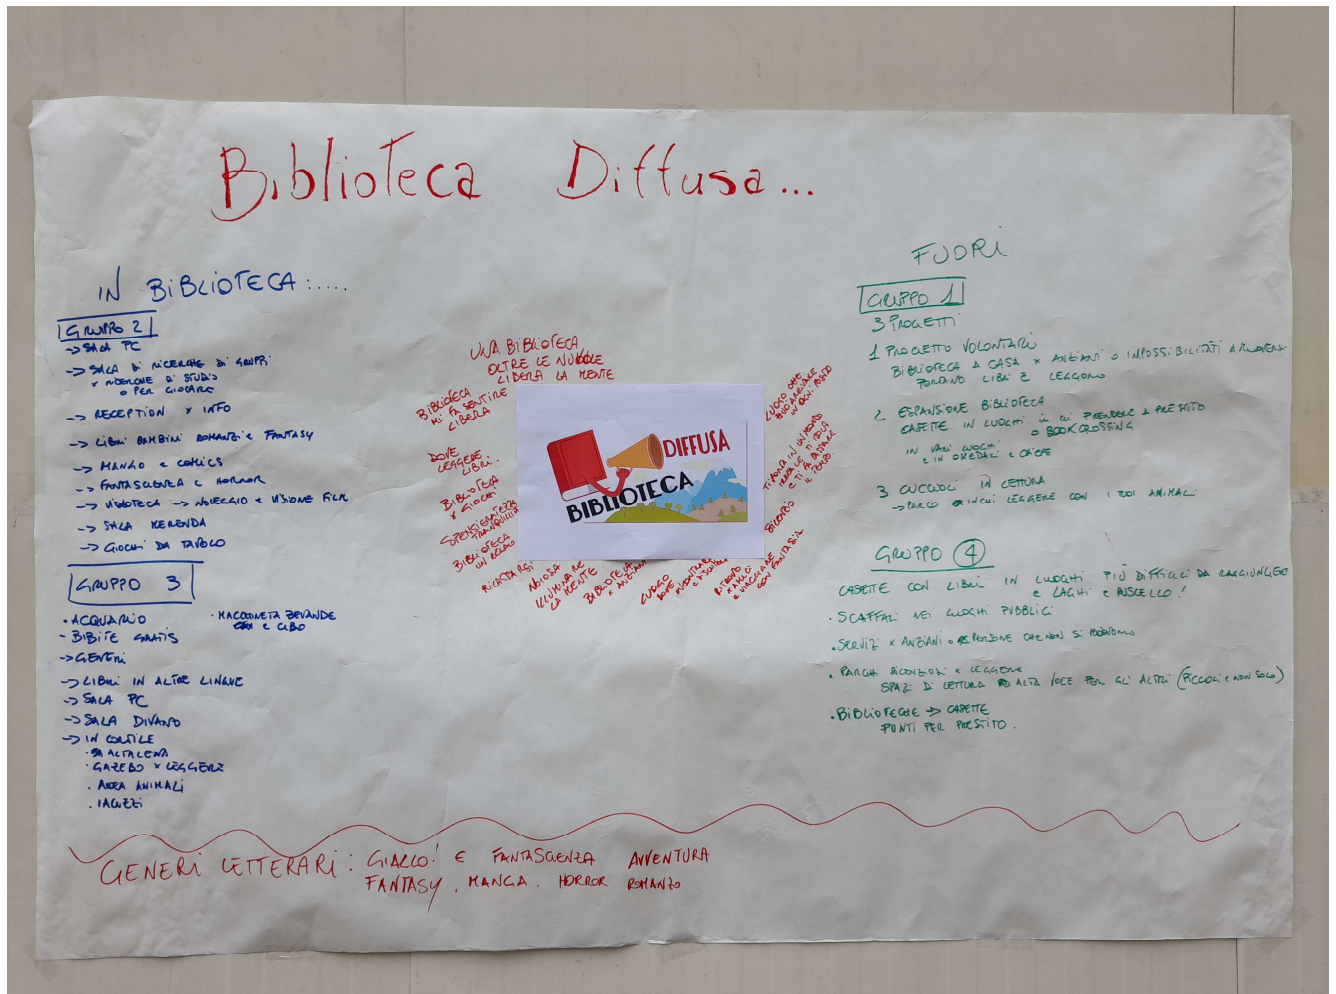 Biblioteca Diffusa...
IN BIBLIOTECA:....
GRUPPO 2
-> SALA PC
-> SALA DI RICERCHE DI GRUPPI
x RICERCHE DI STUDIO
O PER GIOCARE
-> RECEPTION x INFO
-> LIBRI BAMBINI ROMANZI E FANTASY
-> MANGO E COMICS
-> FANTASCIENZA E HORROR
-> VIDEOTECA -> NOLEGGIO E VISIONE FILM
-> SALA MERENDA
-> GIOCHI DA TAVOLO
GRUPPO 3
• ACQUARIO
• MACCHINETTA BEVANDE
E CIBO
- BIBITE GRATIS
-> GENERI
-> LIBRI IN ALTRE LINGUE
-> SALA PC
-> SALA DIVANO
-> IN CORTILE
• ALTALENA
• GAZEBO x LEGGERE
• AREA ANIMALI
• IACUZZI
UNA BIBLIOTECA
OLTRE LE NUVOLE
LIBERA LA MENTE
BIBLIOTECA
MI FA SENTIRE
LIBERA
DOVE
LEGGERE
LIBRI.
BIBLIOTECA
x GIOCHI
SPENSIERATEZZA
TRANQUILLITÀ
BIBLIOTECA
UN REGALO
RICATARGI
NOIOSA
ILLUMINARE
LA MENTE
BIBLIOTECA
x ANZIANI
LUOGO
DOVE
INCONTRARE
RITROVO
x AMICI
E VIAGGIARE
CON FANTASIA
SILENZIO
TI PORTA IN UN MONDO
E TI FA PASSARE
IL TEMPO
LUOGO CHE
PUOI ARRIVARE
IN OGNI POSTO
BIBLIOTECA
DIFFUSA
FUORI
GRUPPO 1
3 PROGETTI
1 PROGETTO VOLONTARI
BIBLIOTECA A CASA x ANZIANI O IMPOSSIBILITATI A MUOVERSI
PORTANO LIBRI E LEGGONO
2 ESPANSIONE BIBLIOTECA
CASETTE IN LUOGHI in cui PRENDERE A PRESTITO
O BOOKCROSSING
IN VARI LUOGHI
E IN OSPEDALI E CAFFE
3 CUCCIOLI IN LETTURA
-> PARCO in cui LEGGERE CON I TUOI ANIMALI
GRUPPO 4
CASETTE CON LIBRI IN LUOGHI PIÙ DIFFICILI DA RAGGIUNGERE
E LAGHI E RUSCELLO!
• SCAFFALI NEI LUOGHI PUBBLICI
• SERVIZI x ANZIANI O PERSONE CHE NON SI MUOVONO
• PARCHI SILENZIOSI E LEGGERE
SPAZI DI LETTURA AD ALTA VOCE PER GLI ALTRI (PICCOLI E NON SOLO)
• BIBLIOTECHE -> CASETTE
PUNTI PER PRESTITO.
GENERI LETTERARI: GIALLO! E FANTASCIENZA AVVENTURA
FANTASY, MANGA. HORROR ROMANZO